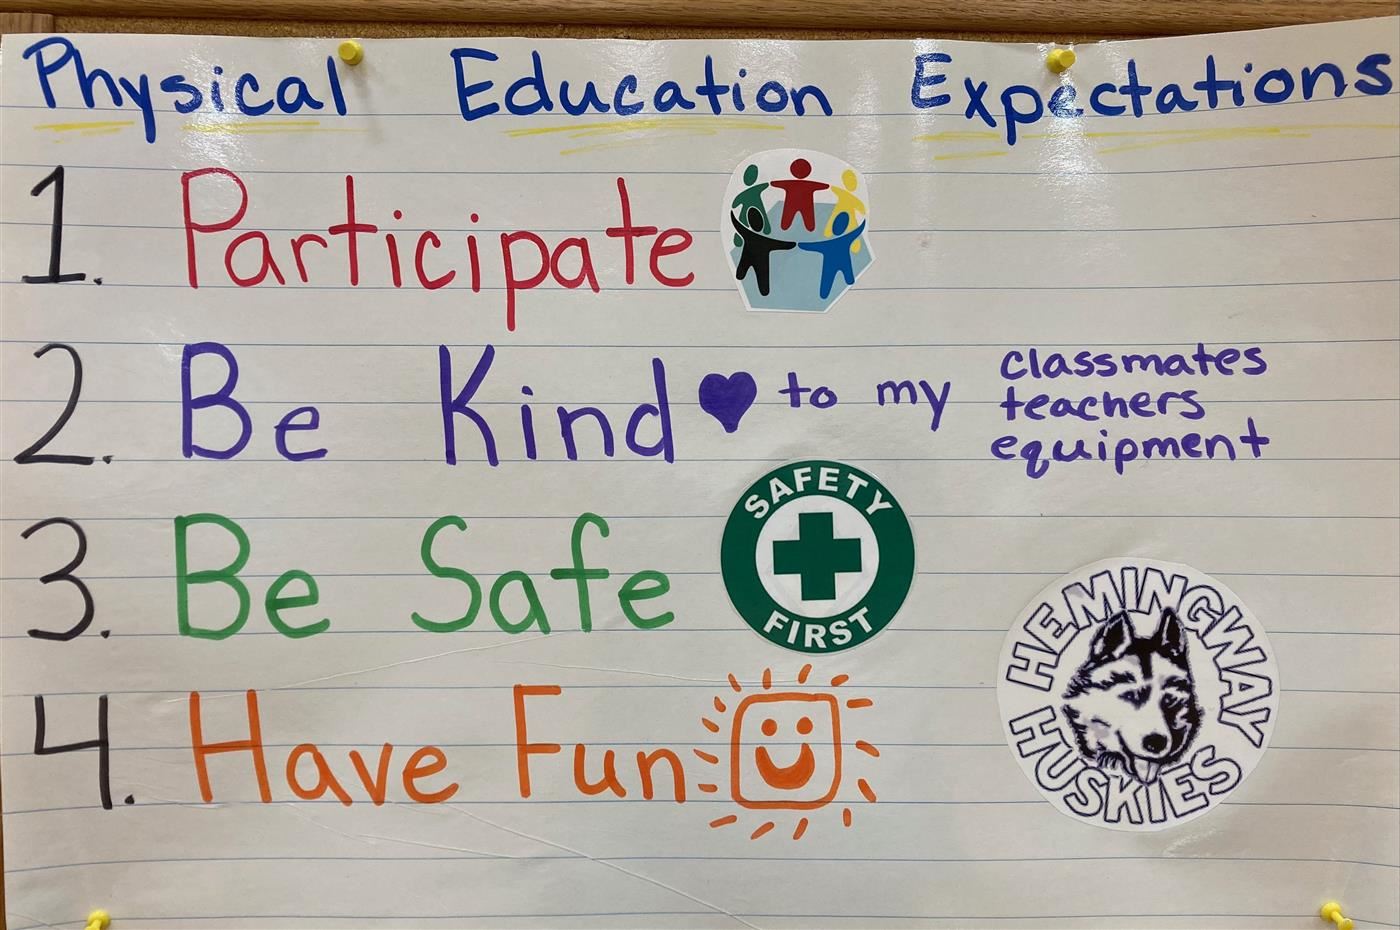 Physical Education Expectations
1. Participate
2. Be Kind to my classmates
teachers
equipment
3. Be Safe
SAFETY
FIRST
4. Have Fun
HEMINGWAY
HUSKIES